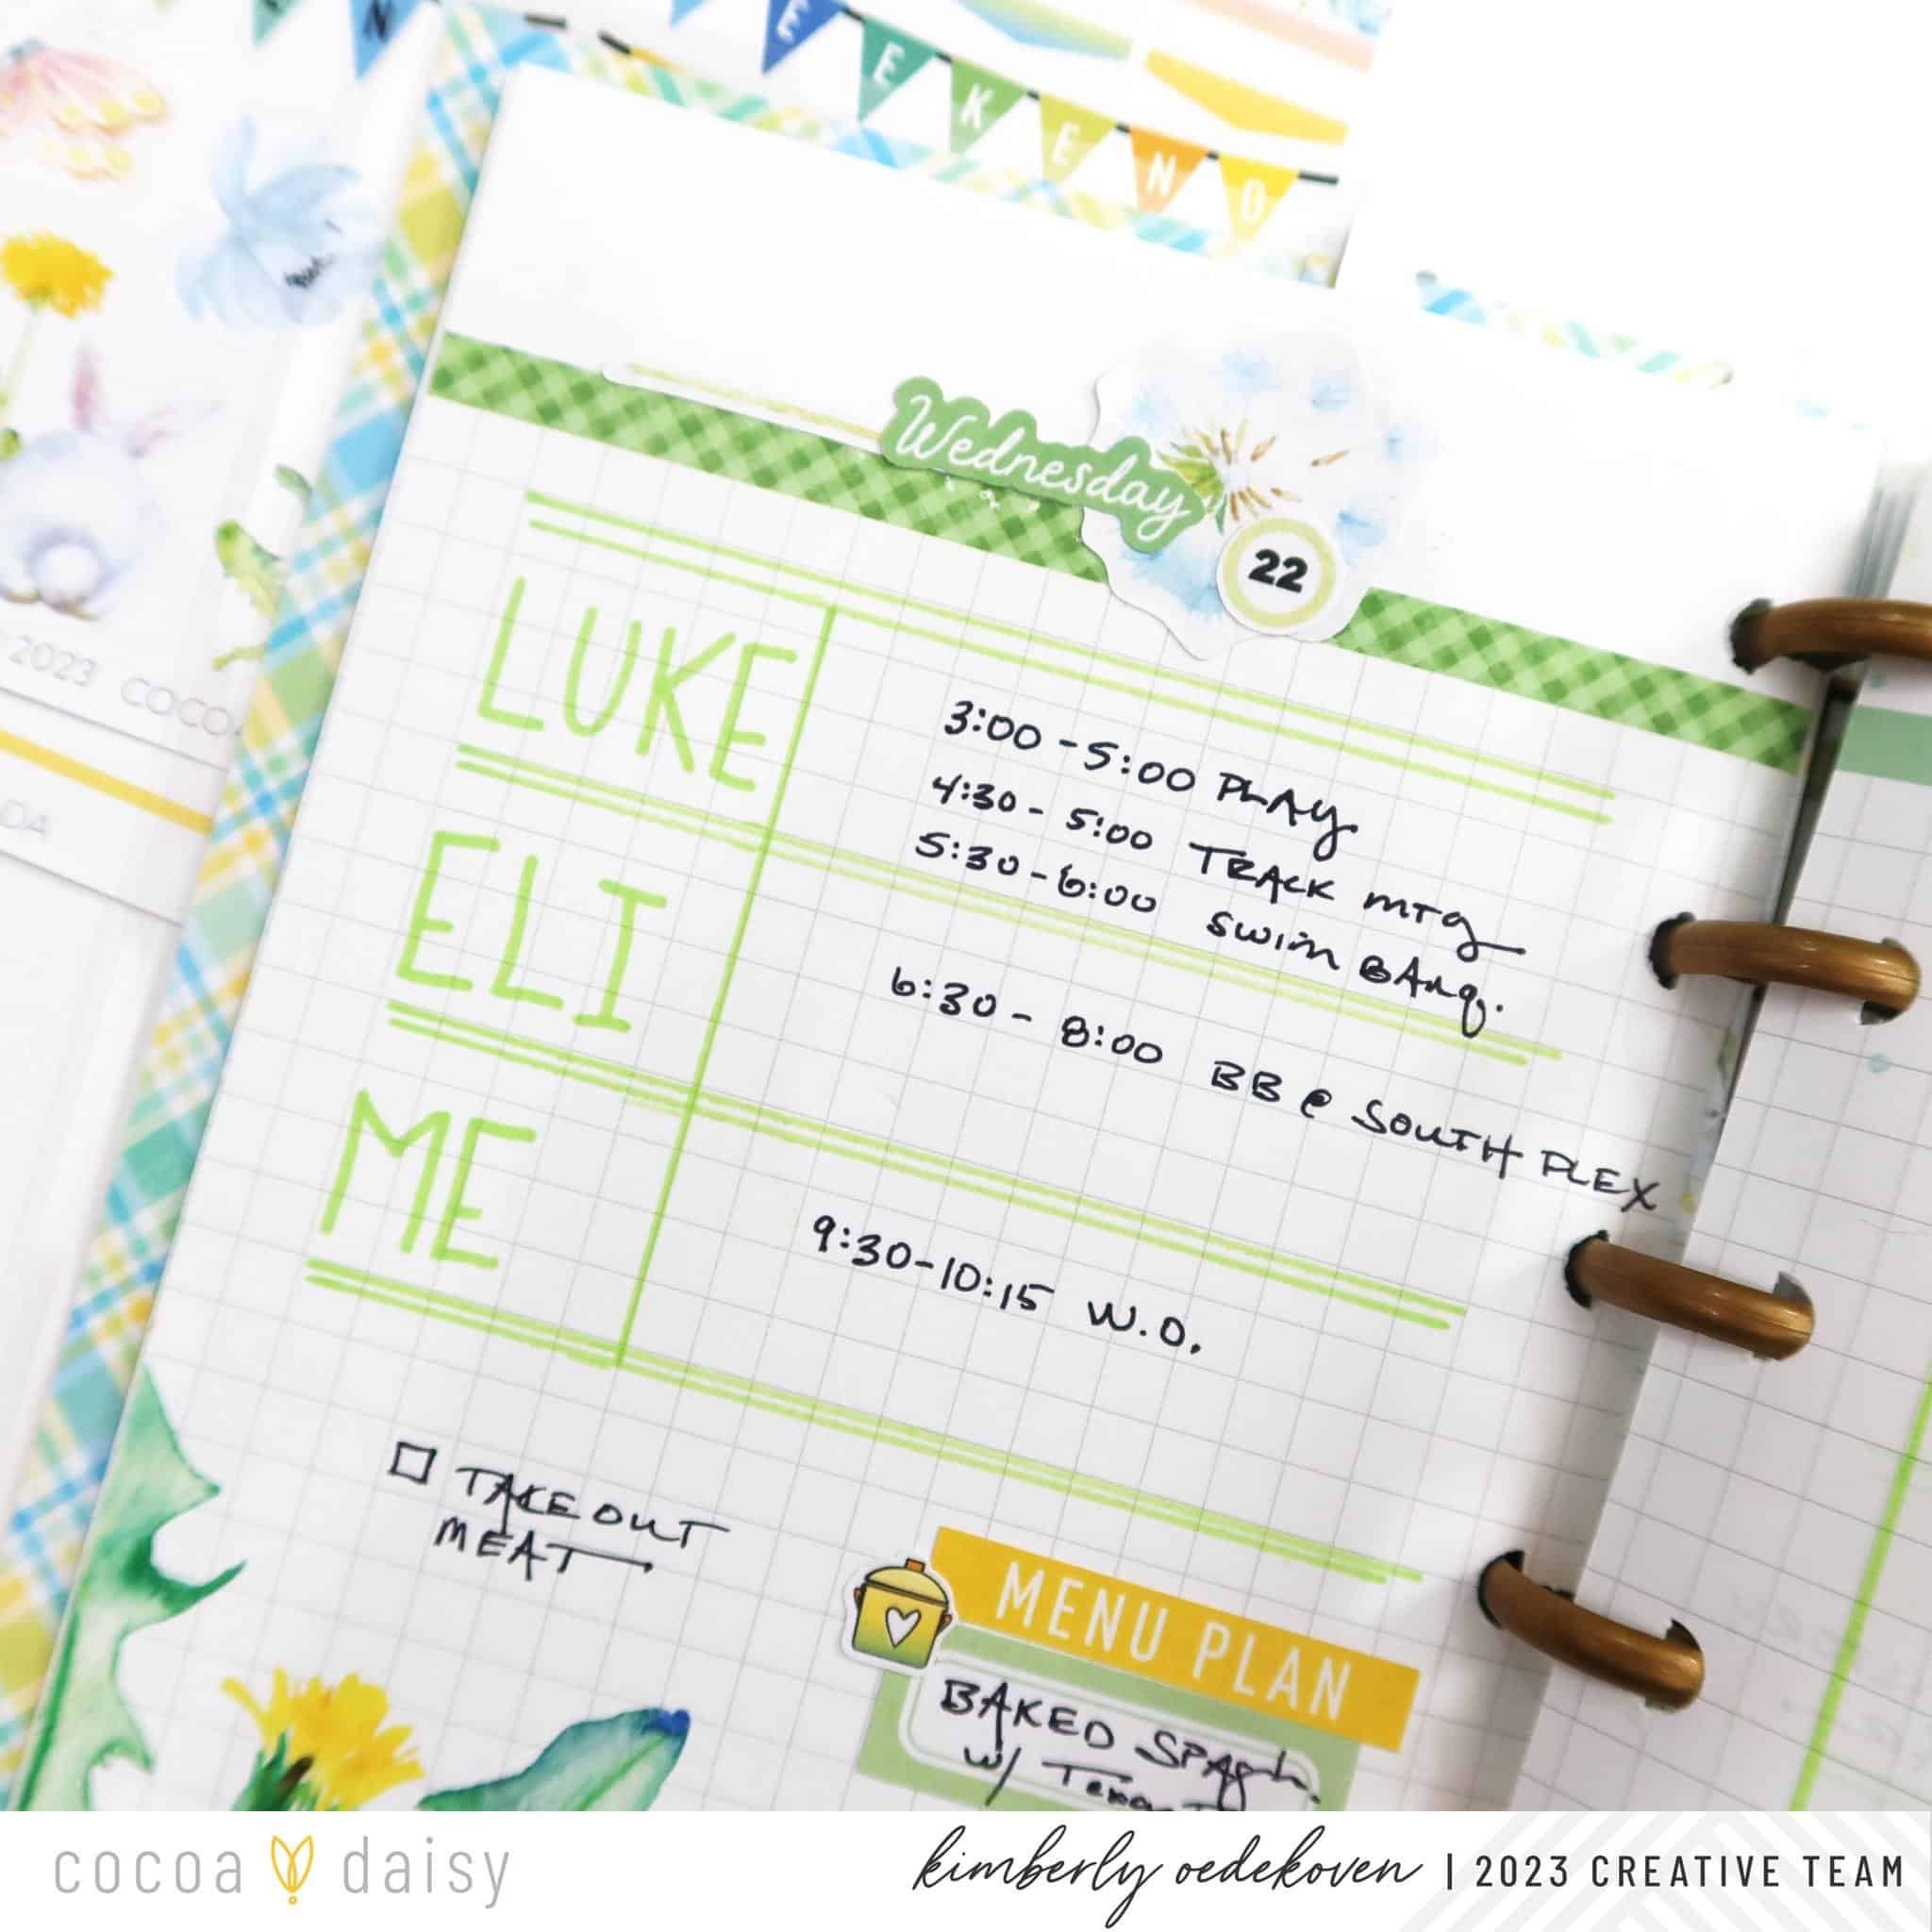 N E E K E N D
Wednesday
22
LUKE
3:00 - 5:00 PLAY
4:30 - 5:00 TRACK MTG
5:30 - 6:00 SWIM BANQ.
ELI
6:30 - 8:00 BB @ SOUTH PLEX
ME
9:30-10:15 W.O.
TAKE OUT
MEAT
MENU PLAN
BAKED SPAGH.
w/
2023 COCOA
DA
cocoa daisy
kimberly oedekoven | 2023 CREATIVE TEAM